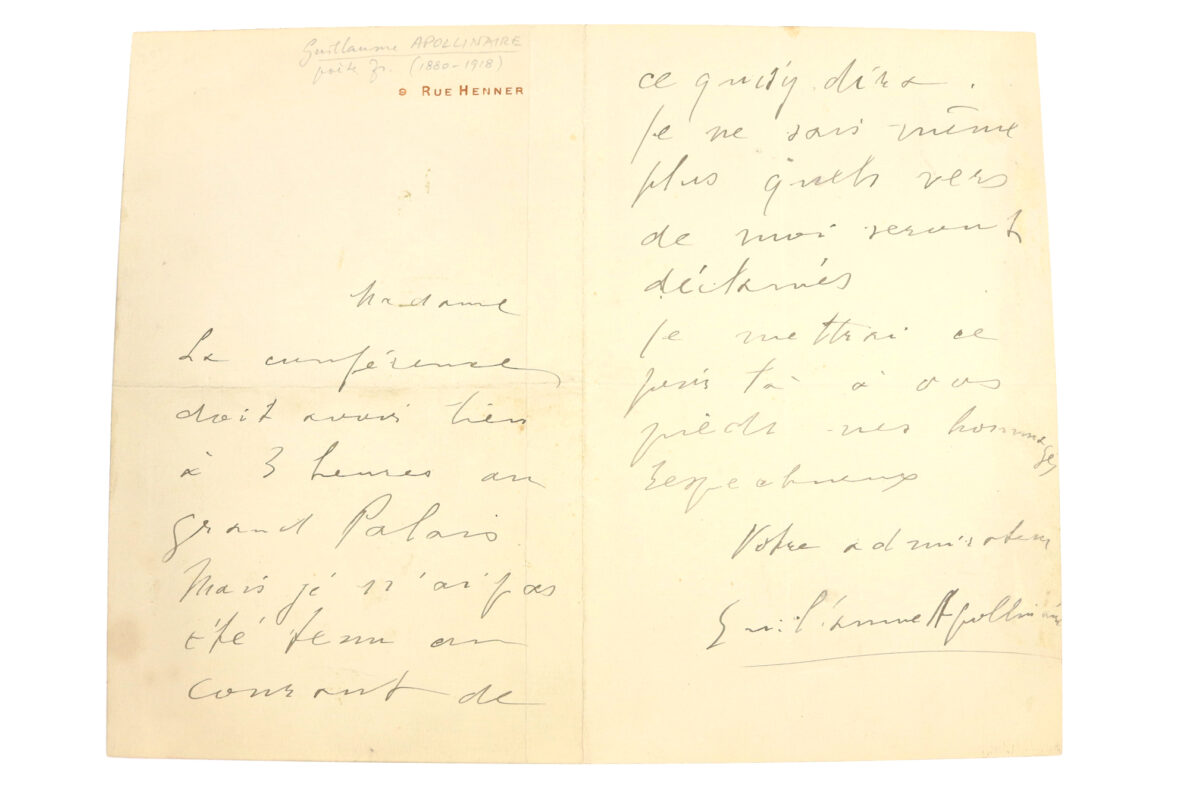 Guillaume APOLLINAIRE
poète fr. (1880-1918)
9 RUE HENNER
Madame
La conférence
doit avoir lieu
à 3 heures au
grand Palais.
Mais je n'ai pas
été tenu au
courant de
ce qui s'y dira.
Je ne sais même
plus quels vers
de moi seront
déclamés
Je mettrai ce
jour là à vos
pieds mes hommages
respectueux
Votre admirateur
Guillaume Apollinaire